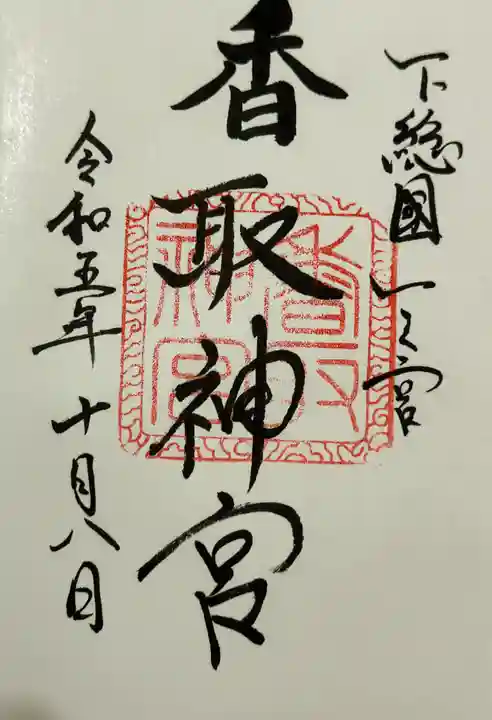 下総國 一之宮
香取神宮
香取神宮
令和五年 十月八日